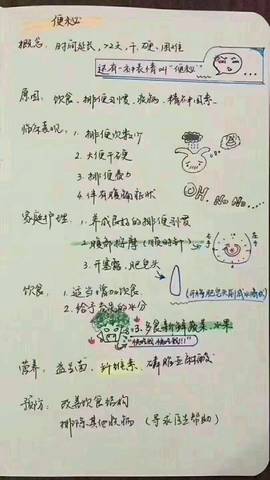 便秘
概念：时间延长，>2天，干、硬、困难
还有一种表情叫"便秘"
原因：饮食、排便习惯、疾病、精神因素
临床表现：1. 排便次数少
2. 大便干硬
3. 排便费力
4. 伴有腹胀症状
OH. No No...
家庭护理：1. 养成良好的排便习惯
2. 腹部按摩（顺时针）
3. 开塞露、肥皂头
饮食：1. 适当增加饮食
2. 给予充足的水分
3. 多食新鲜蔬菜、水果
"快吃我，快吃我!!!"
营养：益生菌、纤维素、磷脂
预防：改善饮食结构
排除其他疾病（寻求医生帮助）